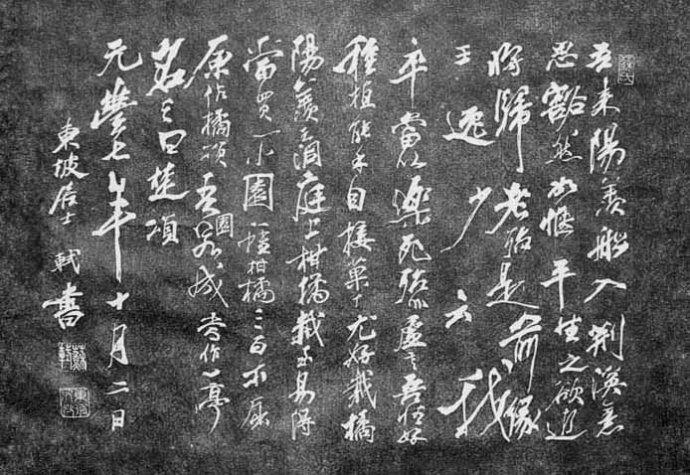 吾来陽羡船入荆溪意
思豁然如惬平生之欲逝
将歸老殆是前緣
王逸少云我
卒當以樂死殆非虚言吾性好
種植能手自接菓木尤好栽橘
陽羡在洞庭上柑橘栽至易得
當買一小園種柑橘三百本屈
原作橘頌吾園若成當作一亭
名之曰楚頌
元豐七年十月二日
東坡居士軾書